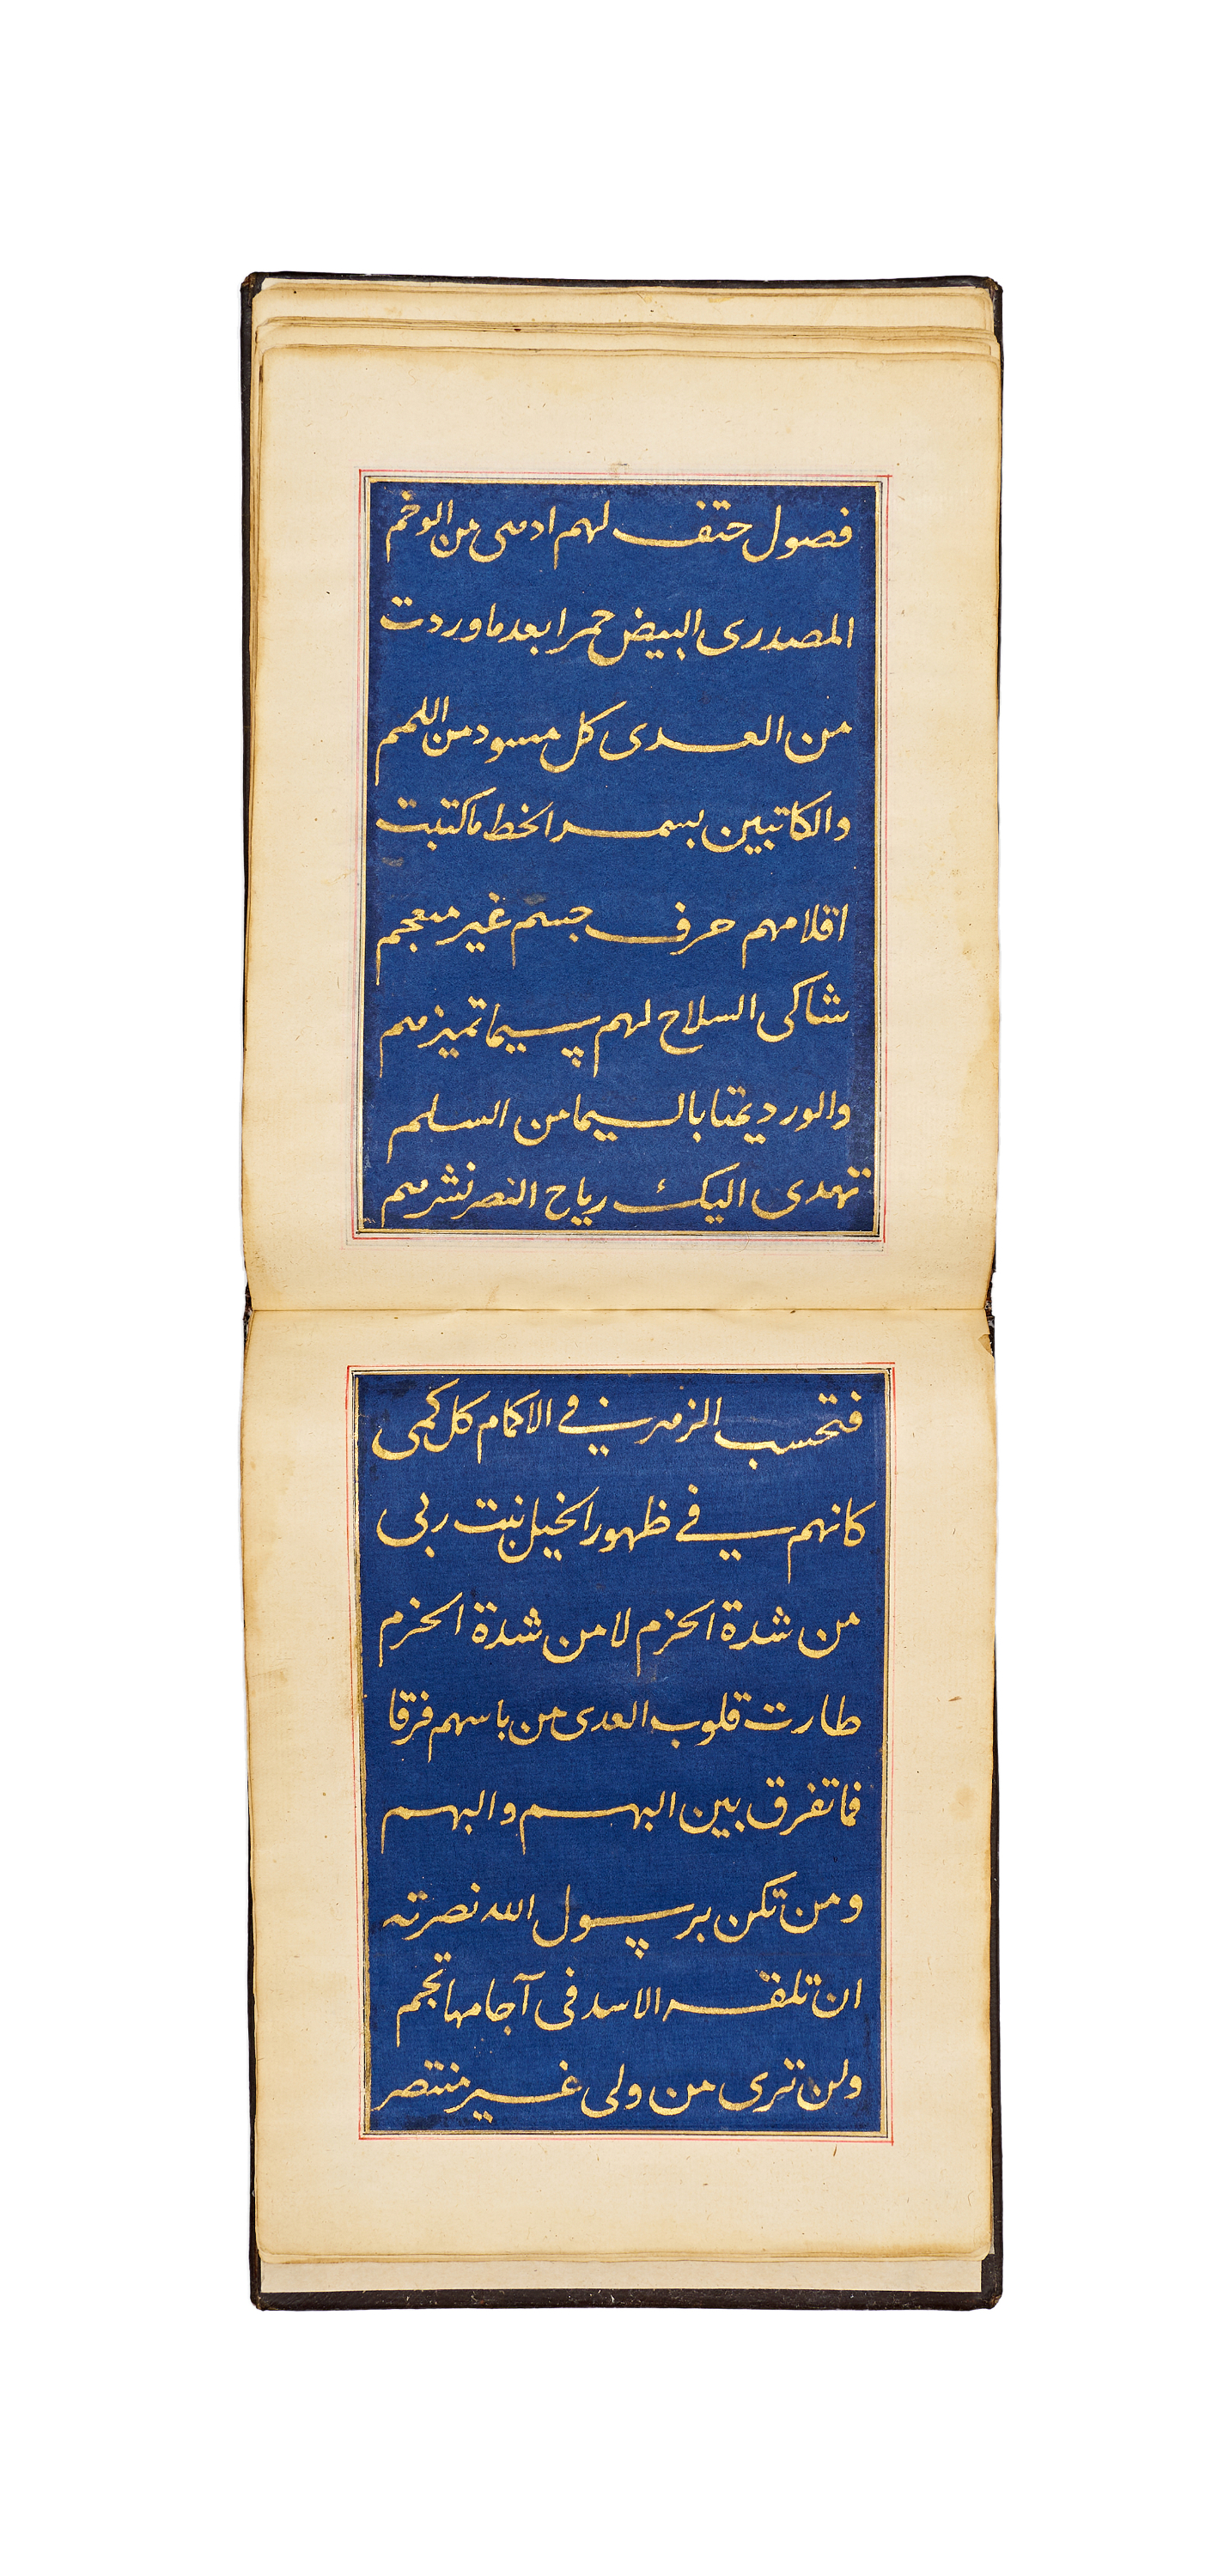 فصول حتف لهم ادهى من الوخم
المصدرى البيض حمرا بعد ما وردت
من العدى كل مسود من اللمم
والكاتبين بسمر الخط ما كتبت
اقلامهم حرف جسم غير منعجم
شاكى السلاح لهم سيما تميزهم
والورد يمتا بالسيما من السلم
تهدى اليك رياح النصر نشرهم
فتحسب الزهر في الاكمام كل كمى
كانهم في ظهور الخيل نبت ربى
من شدة الحزم لا من شدة الحزم
طارت قلوب العدى من باسهم فرقا
فما تفرق بين البهم والبهم
ومن تكن برسول الله نصرته
ان تلقه الاسد فى آجامها تجم
ولن ترى من ولى غير منتصر